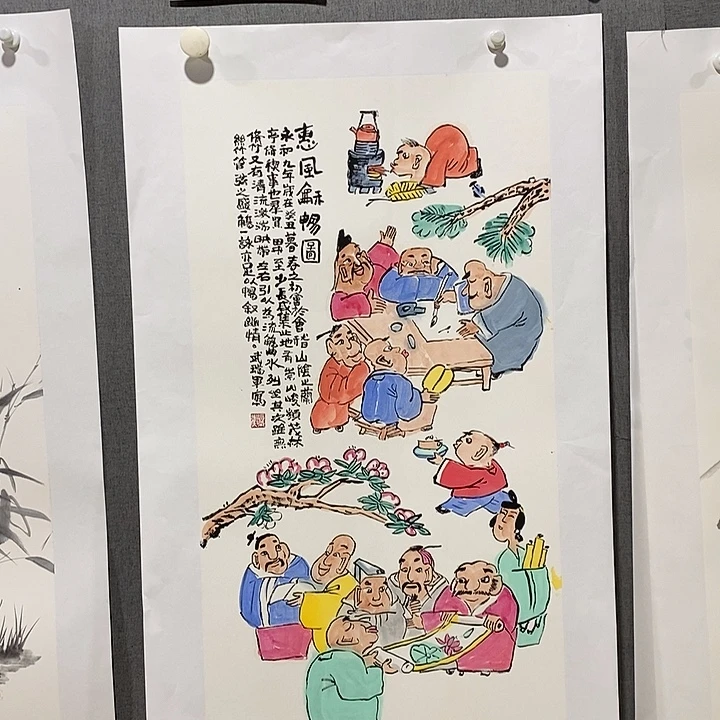 惠風龢暢圖
永和九年歲在癸丑暮春之初會於會稽山陰之蘭
亭脩稧事也羣賢畢至少長咸集此地有崇山峻領茂林
脩竹又有清流激湍映帶左右引以為流觴曲水列坐其次雖無
絲竹管弦之盛一觴一詠亦足以暢敘幽情。武瑞軍寫